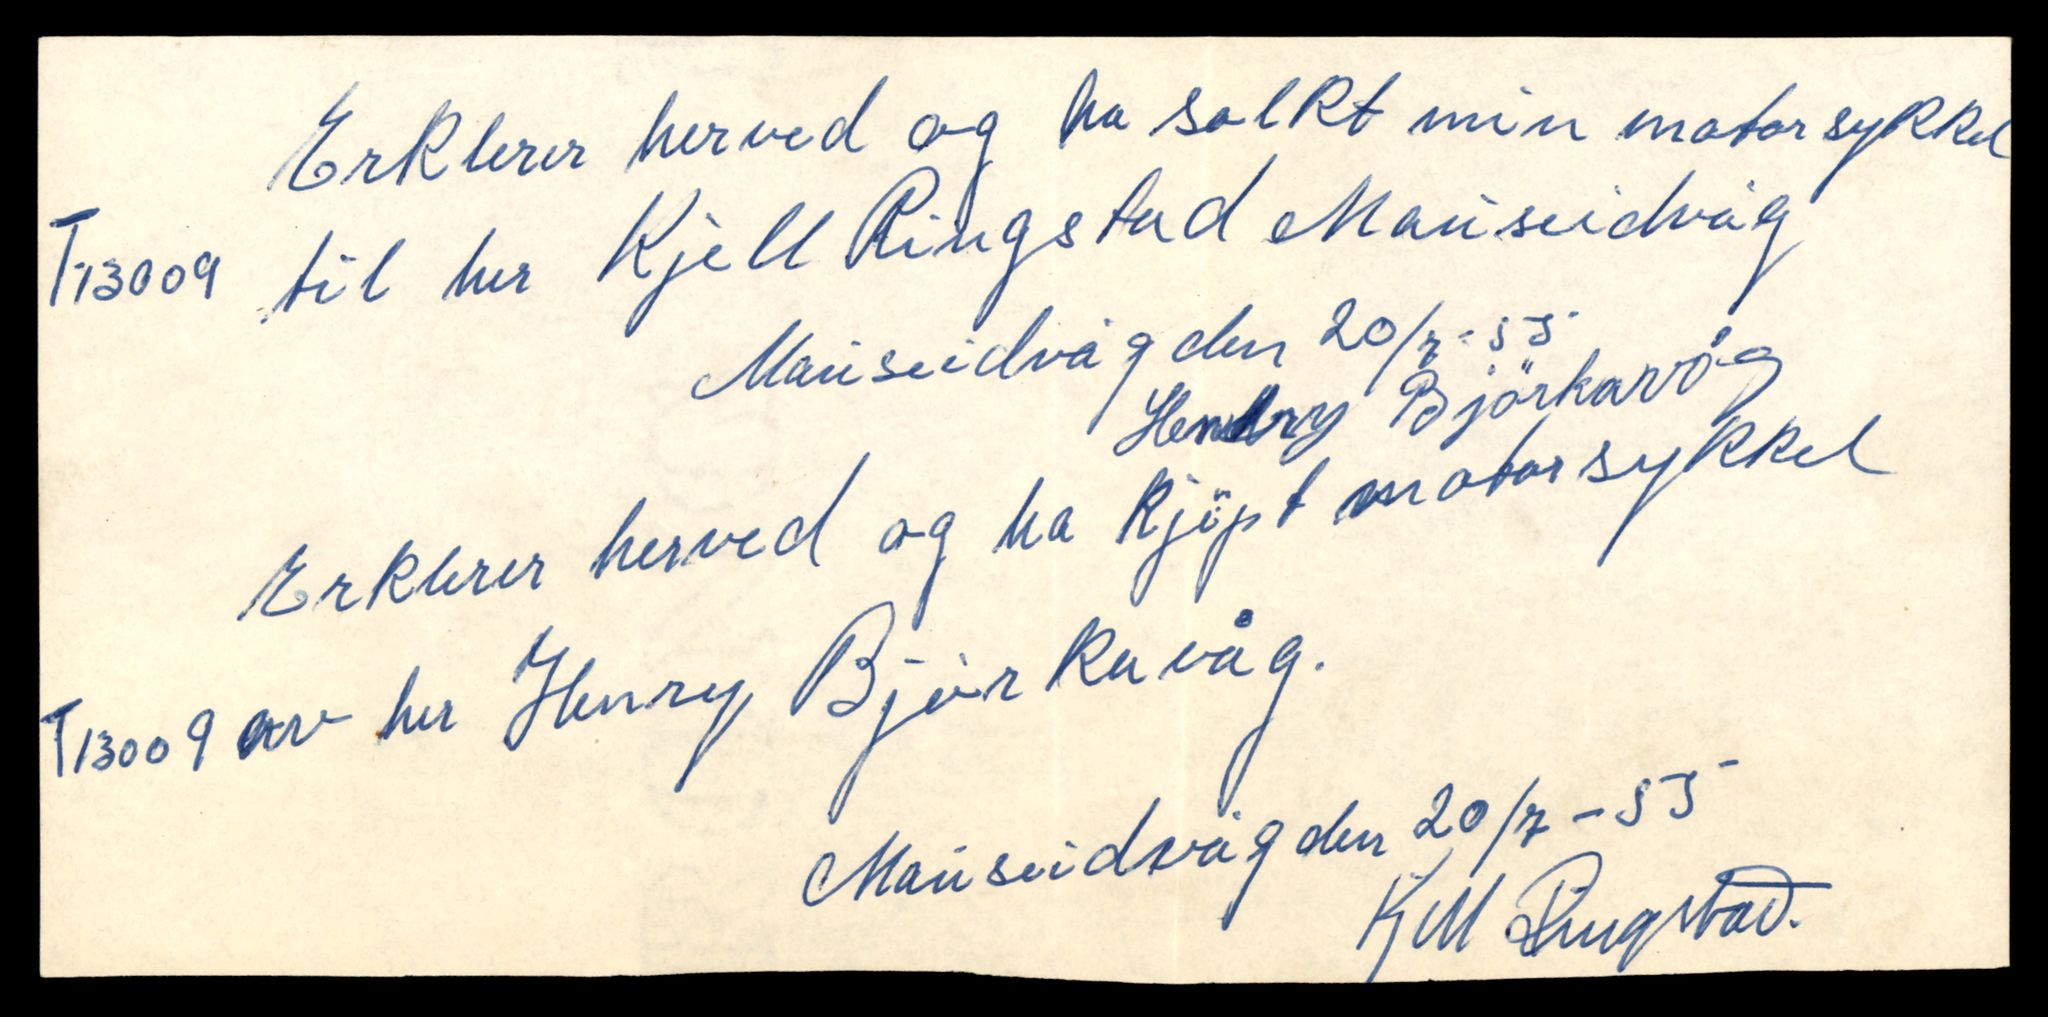 Erklerer herved og ha solkt min motorsykkel
T13009 til her Kjell Ringstad Mauseidvåg
Mauseidvåg den 20/7-55
Henry Björkavåg
Erklerer herved og ha kjöpt motorsykkel
T13009 av her Henry Björkavåg.
Mauseidvåg den 20/7-55
Kjell Ringstad.